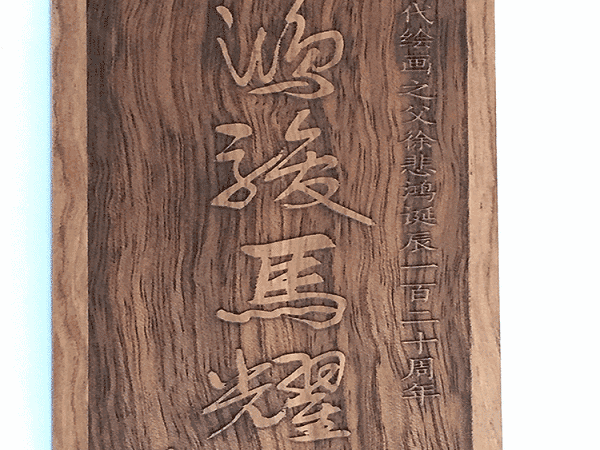 代绘画之父徐悲鸿诞辰一百二十周年
鸿骏马耀